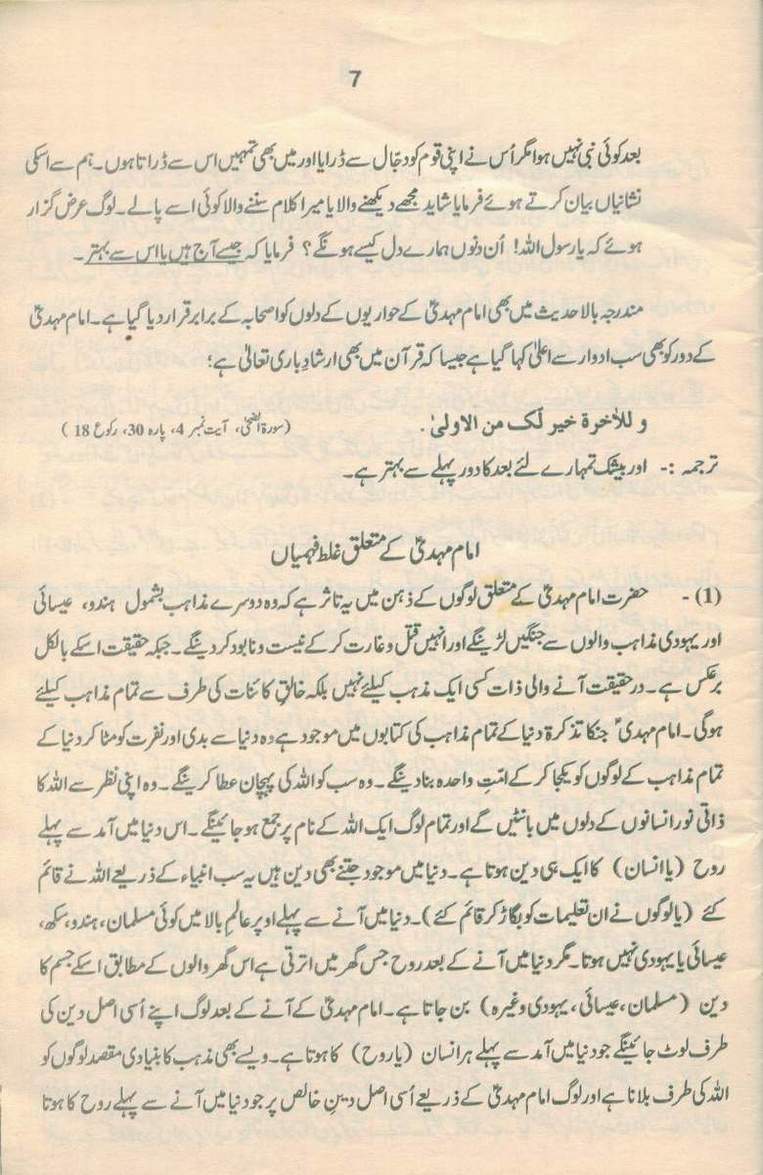 7
بعد کوئی نبی نہیں ہوا مگر اُس نے اپنی قوم کو دجّال سے ڈرایا اور میں بھی تمہیں اس سے ڈراتا ہوں۔ ہم سے اسکی
نشانیاں بیان کرتے ہوئے فرمایا شاید مجھے دیکھنے والا یا میرا کلام سننے والا کوئی اسے پالے۔ لوگ عرض گزار
ہوئے کہ یا رسول اللہ! اُن دنوں ہمارے دل کیسے ہونگے؟ فرمایا کہ جیسے آج ہیں یا اس سے بہتر۔
مندرجہ بالا حدیث میں بھی امام مہدیؑ کے حواریوں کے دلوں کو اصحابہ کے برابر قرار دیا گیا ہے۔ امام مہدیؑ
کے دور کو بھی سب ادوار سے اعلیٰ کہا گیا ہے جیسا کہ قرآن میں بھی ارشادِ باری تعالیٰ ہے؛
و للأخرة خیر لک من الاولیٰ. (سورۃ الضحیٰ، آیت نمبر 4، پارہ 30، رکوع 18)
ترجمہ :- اور بیشک تمہارے لئے بعد کا دور پہلے سے بہتر ہے۔
امام مہدیؑ کے متعلق غلط فہمیاں
(1)- حضرت امام مہدیؑ کے متعلق لوگوں کے ذہن میں یہ تاثر ہے کہ وہ دوسرے مذاہب بشمول ہندو، عیسائی
اور یہودی مذاہب والوں سے جنگیں لڑینگے اور انہیں قتل و غارت کر کے نیست و نابود کر دینگے۔ جبکہ حقیقت اسکے بالکل
برعکس ہے۔ درحقیقت آنے والی ذات کسی ایک مذہب کیلئے نہیں بلکہ خالقِ کائنات کی طرف سے تمام مذاہب کیلئے
ہوگی۔ امام مہدیؑ جنکا تذکرۃ دنیا کے تمام مذاہب کی کتابوں میں موجود ہے وہ دنیا سے بدی اور نفرت کو مٹا کر دنیا کے
تمام مذاہب کے لوگوں کو یکجا کر کے امّتِ واحدہ بنا دینگے۔ وہ سب کو اللہ کی پہچان عطا کرینگے۔ وہ اپنی نظر سے اللہ کا
ذاتی نور انسانوں کے دلوں میں بانٹیں گے اور تمام لوگ ایک اللہ کے نام پر جمع ہو جائینگے۔ اس دنیا میں آمد سے پہلے
روح (یا انسان) کا ایک ہی دین ہوتا ہے۔ دنیا میں موجود جتنے بھی دین ہیں یہ سب انبیاء کے ذریعے اللہ نے قائم
کئے (یا لوگوں نے ان تعلیمات کو بگاڑ کر قائم کئے)۔ دنیا میں آنے سے پہلے اوپر عالمِ بالا میں کوئی مسلمان، ہندو، سکھ،
عیسائی یا یہودی نہیں ہوتا۔ مگر دنیا میں آنے کے بعد روح جس گھر میں اترتی ہے اس گھر والوں کے مطابق اسکے جسم کا
دین (مسلمان، عیسائی، یہودی وغیرہ) بن جاتا ہے۔ امام مہدیؑ کے آنے کے بعد لوگ اپنے اُسی اصل دین کی
طرف لوٹ جائینگے جو دنیا میں آمد سے پہلے ہر انسان (یا روح) کا ہوتا ہے۔ ویسے بھی مذہب کا بنیادی مقصد لوگوں کو
اللہ کی طرف بلانا ہے اور لوگ امام مہدیؑ کے ذریعے اُسی اصل دینِ خالص پر جو دنیا میں آنے سے پہلے روح کا ہوتا